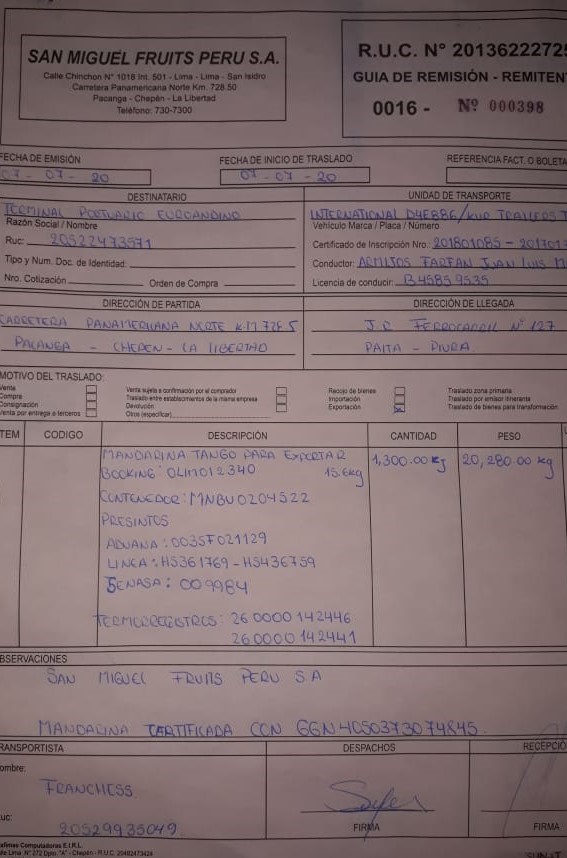 SAN MIGUEL FRUITS PERU S.A.
Calle Chinchon N° 1018 Int. 501 - Lima - Lima - San Isidro
Carretera Panamericana Norte Km. 728.50
Pacanga - Chepén - La Libertad
Teléfono: 730-7300
R.U.C. N° 2013622272
GUIA DE REMISIÓN - REMITEN
0016 - Nº 000398
FECHA DE EMISIÓN
07 - 07 - 20
FECHA DE INICIO DE TRASLADO
07 - 07 - 20
REFERENCIA FACT. O BOLETA
DESTINATARIO
TERMINAL PORTUARIO EUROANDINO
Razón Social / Nombre
Ruc: 20522473571
Tipo y Num. Doc. de Identidad:
Nro. Cotización: Orden de Compra
UNIDAD DE TRANSPORTE
INTERNATIONAL D4E886/KUP TRAILERS T
Vehículo Marca / Placa / Número
Certificado de Inscripción Nro.: 201801085 - 201701
Conductor: ARMIJOS FARFAN JUAN LUIS M
Licencia de conducir: B45859535
DIRECCIÓN DE PARTIDA
CARRETERA PANAMERICANA NORTE KM 728.5
PACANGA - CHEPEN - LA LIBERTAD
DIRECCIÓN DE LLEGADA
J.R FERROCARRIL N° 127
PAITA - PIURA
MOTIVO DEL TRASLADO:
Venta
Compra
Consignación
Venta por entrega a terceros
Venta sujeta a confirmación por el comprador
Traslado entre establecimientos de la misma empresa
Devolución
Otros (especificar)
Recojo de bienes
Importación
Exportación X
Traslado zona primaria
Traslado por emisor itinerante
Traslado de bienes para transformación
ITEM CODIGO DESCRIPCIÓN CANTIDAD PESO
MANDARINA TANGO PARA EXPORTAR 1,300.00 kg 20,280.00 kg
BOOKING: OLIM012340 15.6kg
CONTENEDOR: MNBU0204522
PRESINTOS
ADUANA: 0035F021129
LINEA: HS361769 - HS436759
SENASA: 009984
TERMOREGISTROS: 26 0000 142446
26 0000 142441
OBSERVACIONES
SAN MIGUEL FRUITS PERU S A
MANDARINA CERTIFICADA CON GGN 4050373074845.
TRANSPORTISTA
Nombre:
FRANCHESS
Ruc:
20529935049
DESPACHOS
FIRMA
RECEPCIÓ
FIRMA
Computadoras E.I.R.L.
Lima N° 272 Dpto. "A" - Chepén - R.U.C. 20482473424
SUNAT